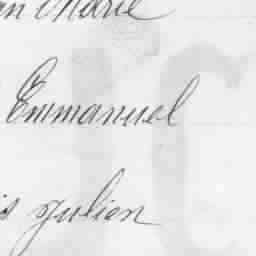 an Marie
Emmanuel
is Julien